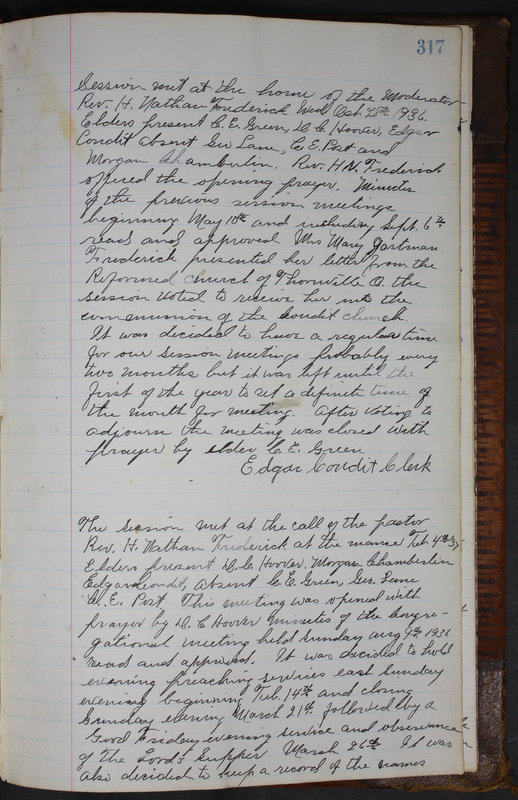 317
Session met at the home of the Moderator
Rev. H. Nathan Frederick Wed Oct. 1936.
Elders present C. E. Green, D. C. Hoover, Edgar
Condit absent Geo Lane, C. E. Post and
Morgan Chamberlin. Rev. H. N. Frederick
offered the opening prayer. Minutes
of the previous session meetings
beginning May 10th and including Sept. 6th
read and approved Mrs Mary Gartman
Frederick presented her letter from the
Reformed church of Thornville O. the
session voted to receive her into the
communion of the Condit church.
It was decided to have a regular time
for our session meetings probably every
two months but it was left until the
first of the year to set a definite time of
the month for meeting. After voting to
adjourn the meeting was closed with
prayer by elder C. E. Green
Edgar Condit Clerk
The session met at the call of the pastor
Rev. H. Nathan Frederick at the manse Feb. 4th 37
Elders present D. C. Hoover, Morgan Chamberlin
Edgar Condit, absent C. E. Green, Geo. Lane
C. E. Post. This meeting was opened with
prayer by D. C. Hoover minutes of the Congre-
gational meeting held Sunday Aug 9th 1936
read and approved. It was decided to hold
evening preaching services each Sunday
evening beginning Feb. 14th and closing
Sunday evening March 21th followed by a
Good Friday evening service and observance
of the Lord's Supper March 26th It was
also decided to keep a record of the names